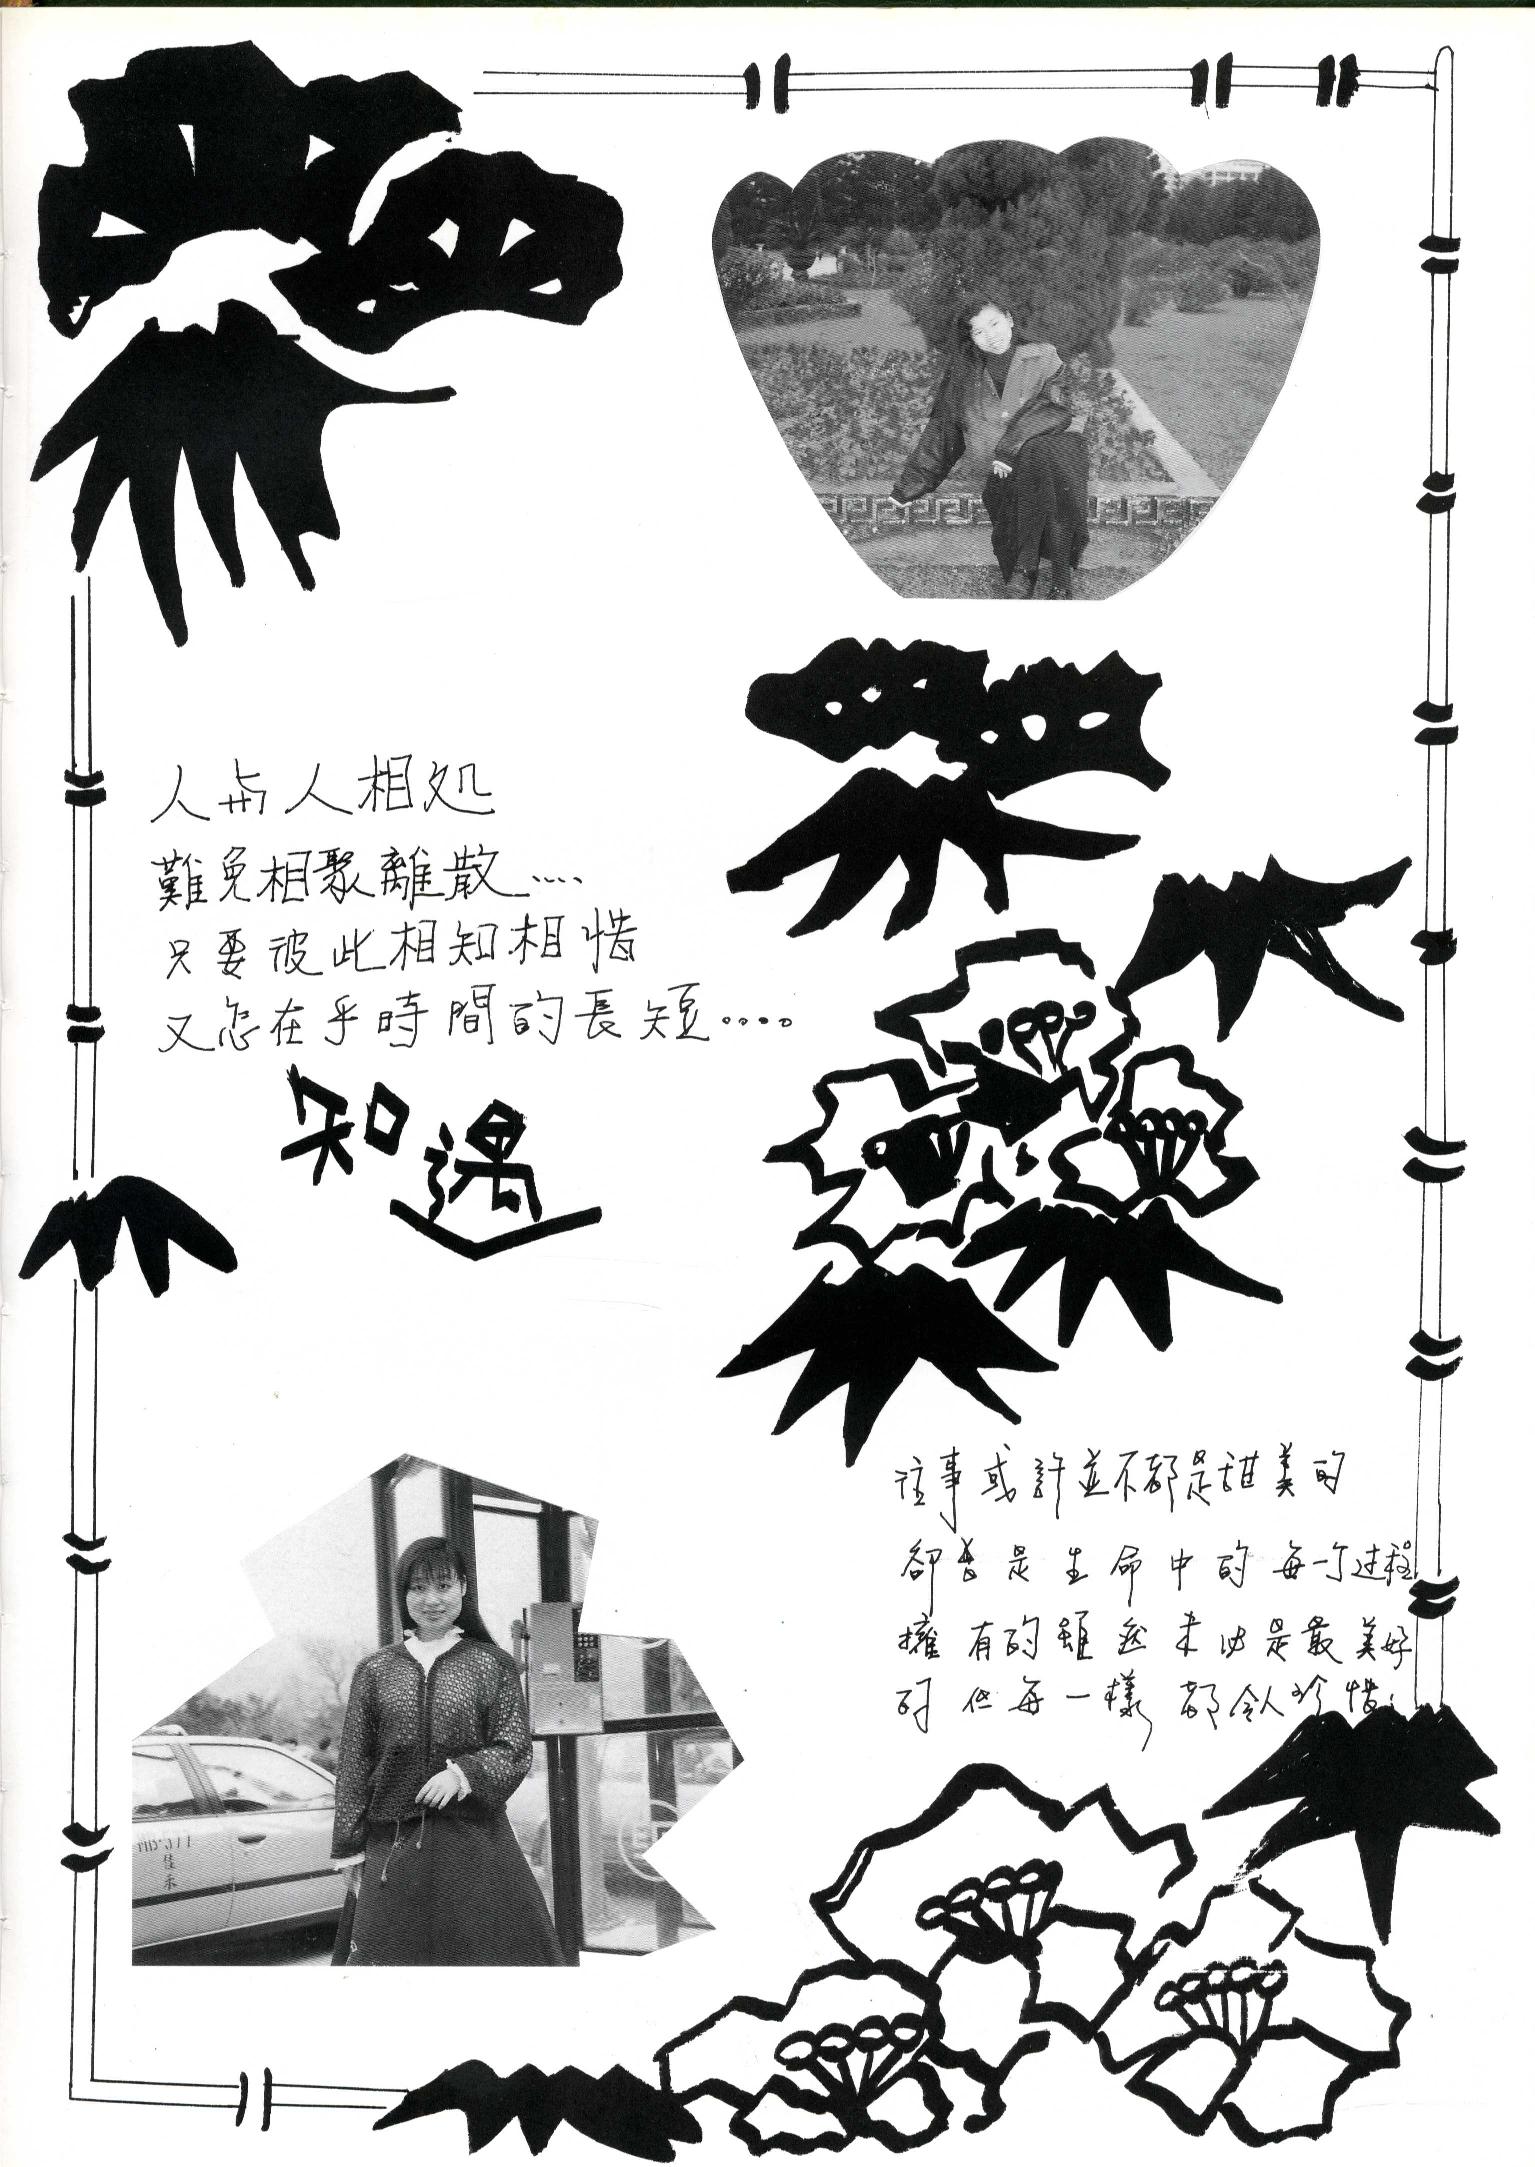 人與人相处
難免相聚離散....
只要彼此相知相惜
又怎在乎時間的長短....
知遇
往事或許並不都是甜美的
卻皆是生命中的每一个过程
擁有的雖然未必是最美好
的但每一樣都令人珍惜
佳禾